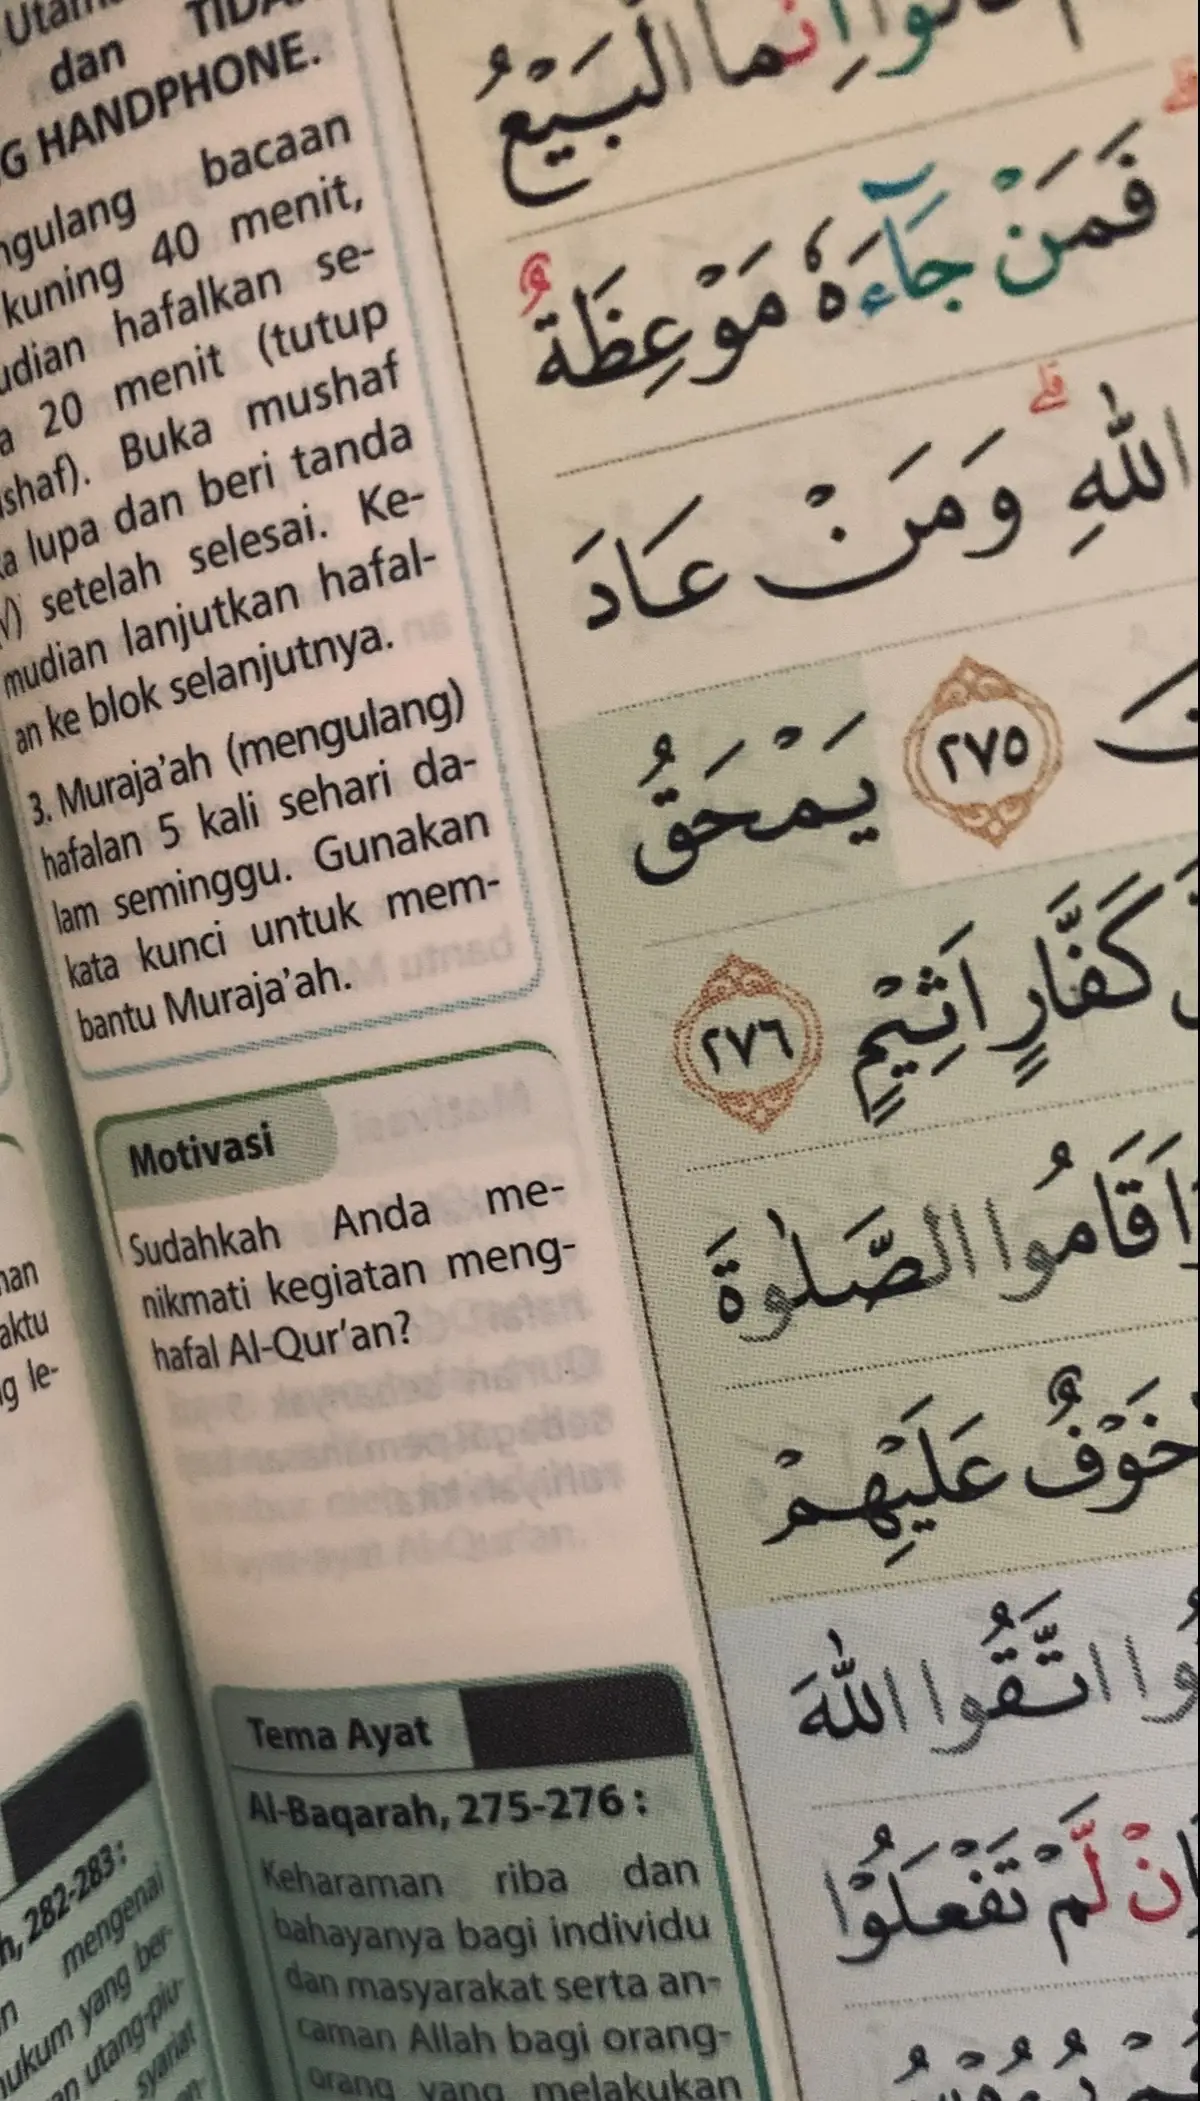 dan
HANDPHONE.
bacaan
kuning 40 menit,
hafalkan se-
20 menit (tutup
Buka mushaf
lupa dan beri tanda
setelah selesai. Ke-
mudian lanjutkan hafal-
an ke blok selanjutnya.
3. Muraja'ah (mengulang)
hafalan 5 kali sehari da-
lam seminggu. Gunakan
kata kunci untuk mem-
bantu Muraja'ah.
Motivasi
Sudahkah Anda me-
nikmati kegiatan meng-
hafal Al-Qur'an?
Tema Ayat
Al-Baqarah, 275-276 :
Keharaman riba dan
bahayanya bagi individu
dan masyarakat serta an-
caman Allah bagi orang-
orang yang melakukan
282-283 :
mengenai
yang ber-
utang-piu-
syariat
اِنَّمَا الْبَيْعُ
فَمَنْ جَاۤءَهٗ مَوْعِظَةٌ
اللّٰهِ ۗ وَمَنْ عَادَ
٢٧٥ يَمْحَقُ
كَفَّارٍ اَثِيْمٍ ٢٧٦
اَقَامُوا الصَّلٰوةَ
خَوْفٌ عَلَيْهِمْ
اتَّقُوا اللّٰهَ
لَّمْ تَفْعَلُوْا